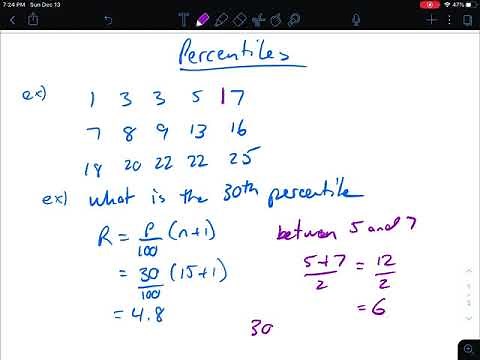 7:24 PM Sun Dec 13
47%
Percentiles
ex) 1 3 3 5 | 7
7 8 9 13 16
18 20 22 22 25
ex) what is the 30th percentile
R = P/100 (n+1)
= 30/100 (15+1)
= 4.8
between 5 and 7
5+7/2 = 12/2
= 6
30